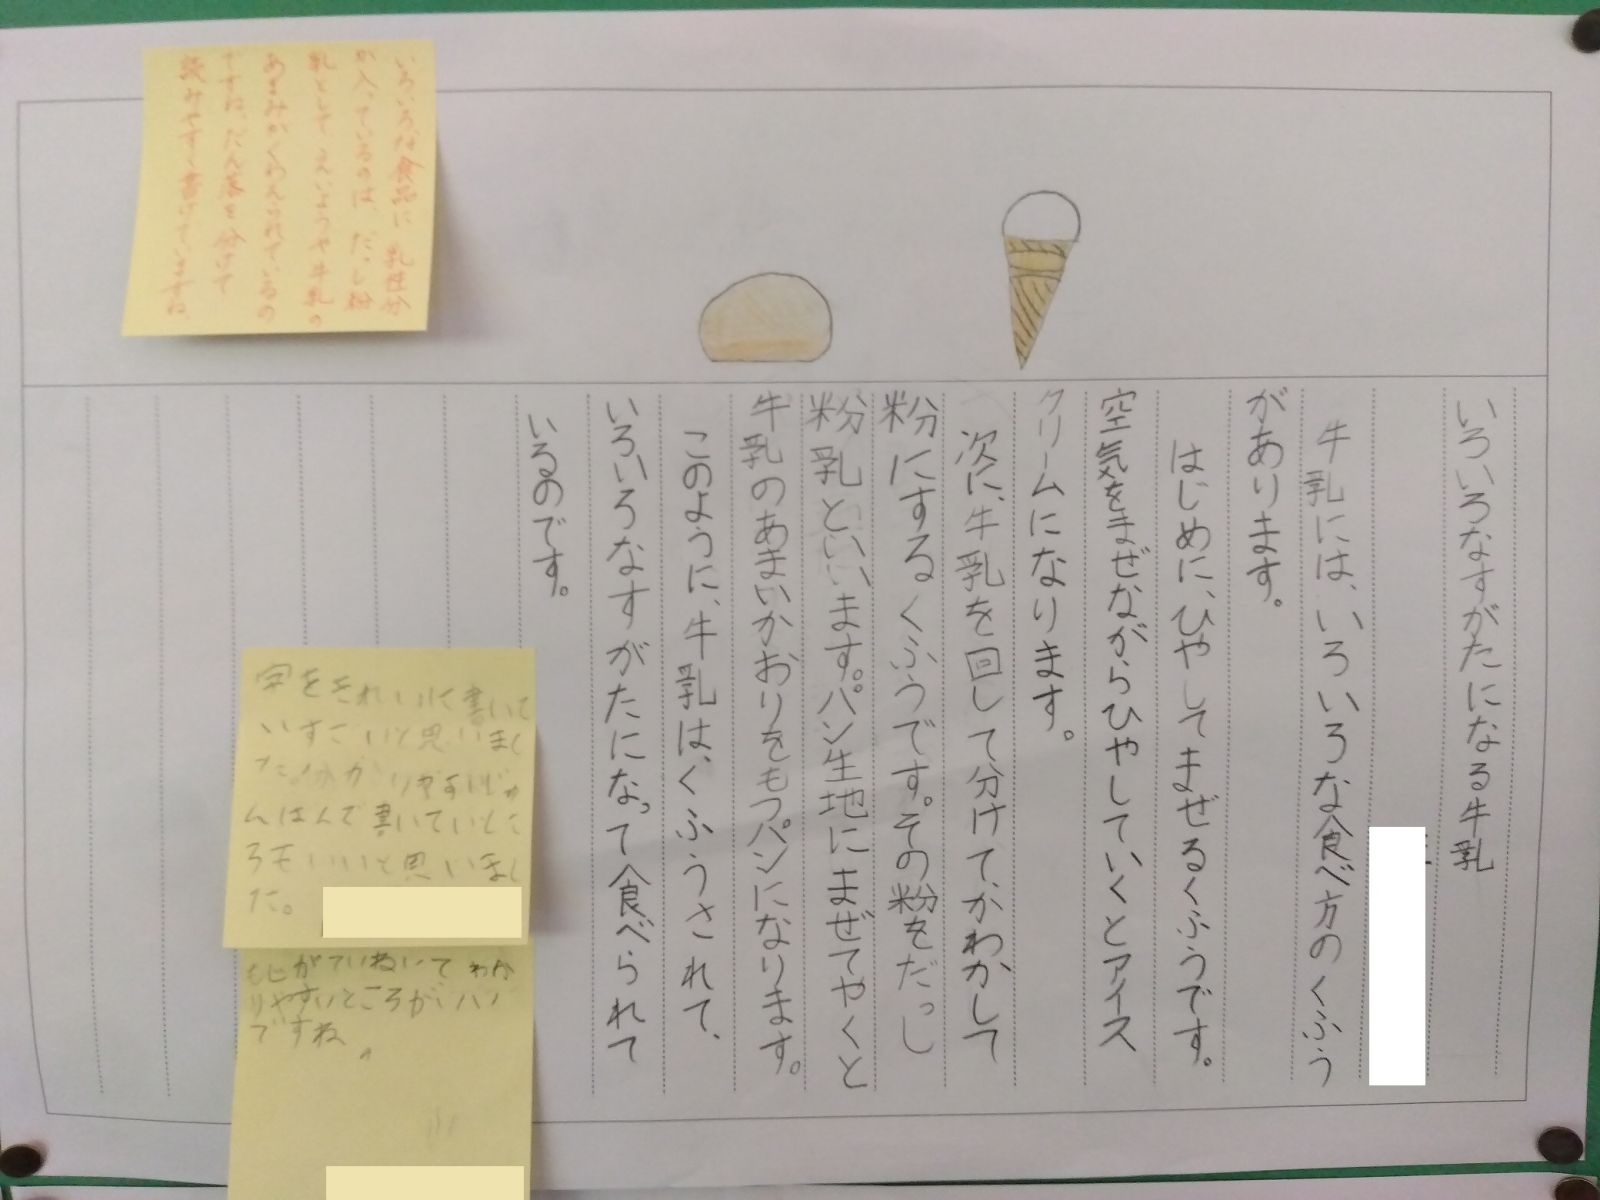 いろいろなすがたになる牛乳
牛乳には、いろいろな食べ方のくふう
があります。
はじめに、ひやしてまぜるくふうです。
空気をまぜながらひやしていくとアイス
クリームになります。
次に、牛乳を回して分けて、かわかして
粉にするくふうです。その粉をだっし
粉乳といいます。パン生地にまぜてやくと
牛乳のあまいかおりをもつパンになります。
このように、牛乳は、くふうされて、
いろいろなすがたになって食べられて
いるのです。
いろいろな食品に乳性分
が入っているのは、だっし粉
乳として、えいようや牛乳の
あまみがくわえられているの
ですね。だん落を分けて
読みやすく書けていますね。
字をきれいに書いて
いすごいと思いまし
た。分かりやすいじゅ
んばんで書いていとこ
ろもいいと思いまし
た。
もじがていねいて わか
りやすいところがいい
ですね。